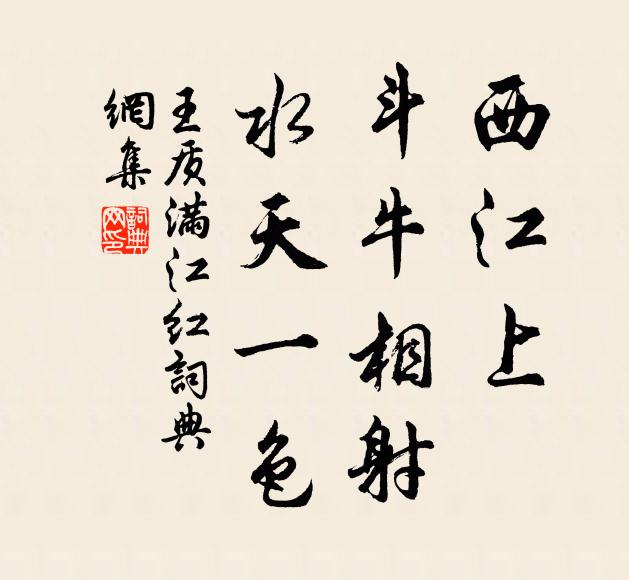 西江上
斗牛相射
水天一色
王质满江红詞典
網集
詞典
网印